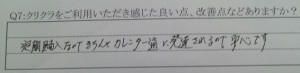 Q7:クリクラをご利用いただき感じた良い点、改善点などありますか?
定期購入なのできちんとカレンダー通りに発送されるので安心です